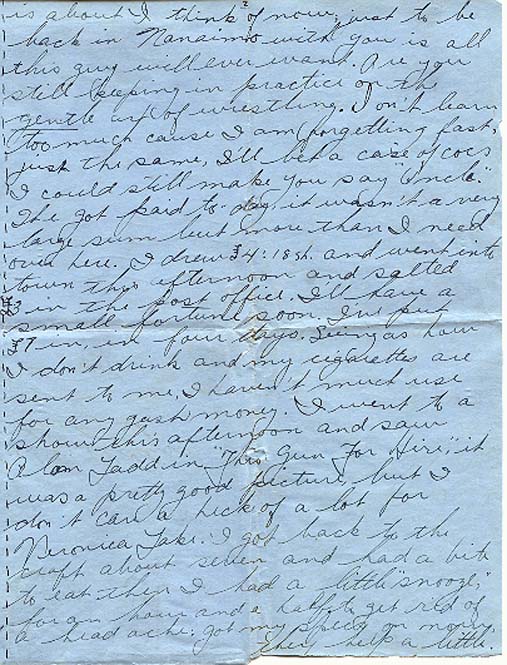 is about I think of now, just to be
back in Nanaimo with you is all
this guy will ever want. Are you
still keeping in practice on the
gentle art of wrestling. Don't learn
too much cause I am forgetting fast,
just the same, I'll bet a case of cocs
I could still make you say "Uncle."
I got paid to-day it wasn't a very
large sum but more than I need
over here. I drew £4:18sh. and went into
town this afternoon and salted
£3 in the post office. I'll have a
small fortune soon. I've put
£7 in in four days. Seeing as how
I don't drink and my cigarettes are
sent to me, I haven't much use
for any gash money. I went to a
show this afternoon and saw
Alan Ladd in "This Gun For Hire", it
was a pretty good picture, but I
don't care a heck of a lot for
Veronica Lake. I got back to the
craft about seven and had a bite
to eat then I had a little "snooze,"
for an hour and a half to get rid of
a head ache: got my specs on
they help a little.